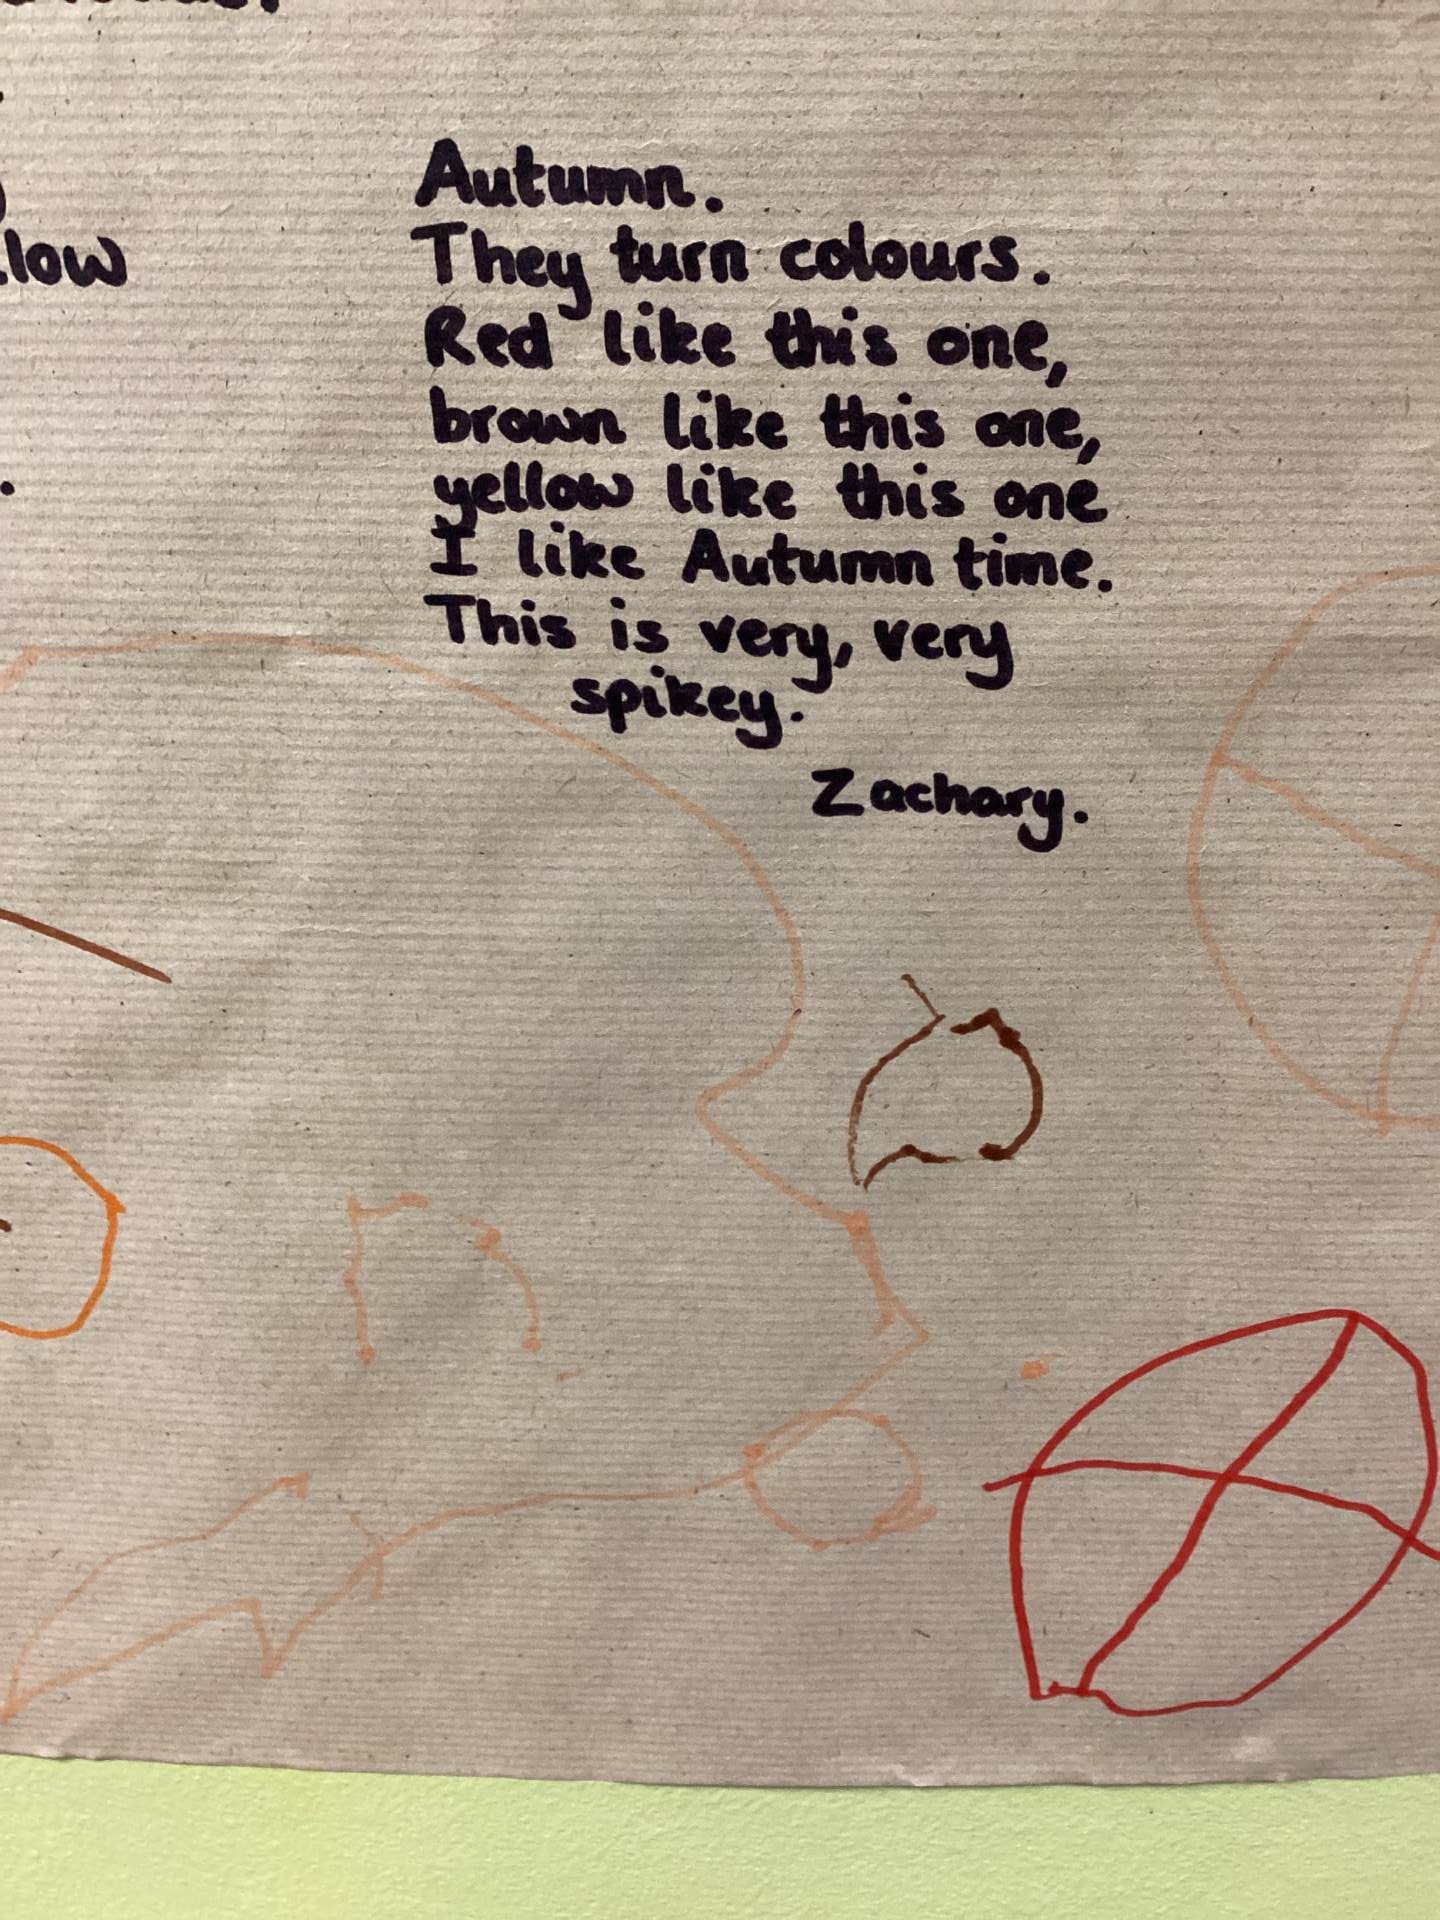 low
Autumn.
They turn colours.
Red like this one,
brown like this one,
yellow like this one
I like Autumn time.
This is very, very
spikey.
Zachary.